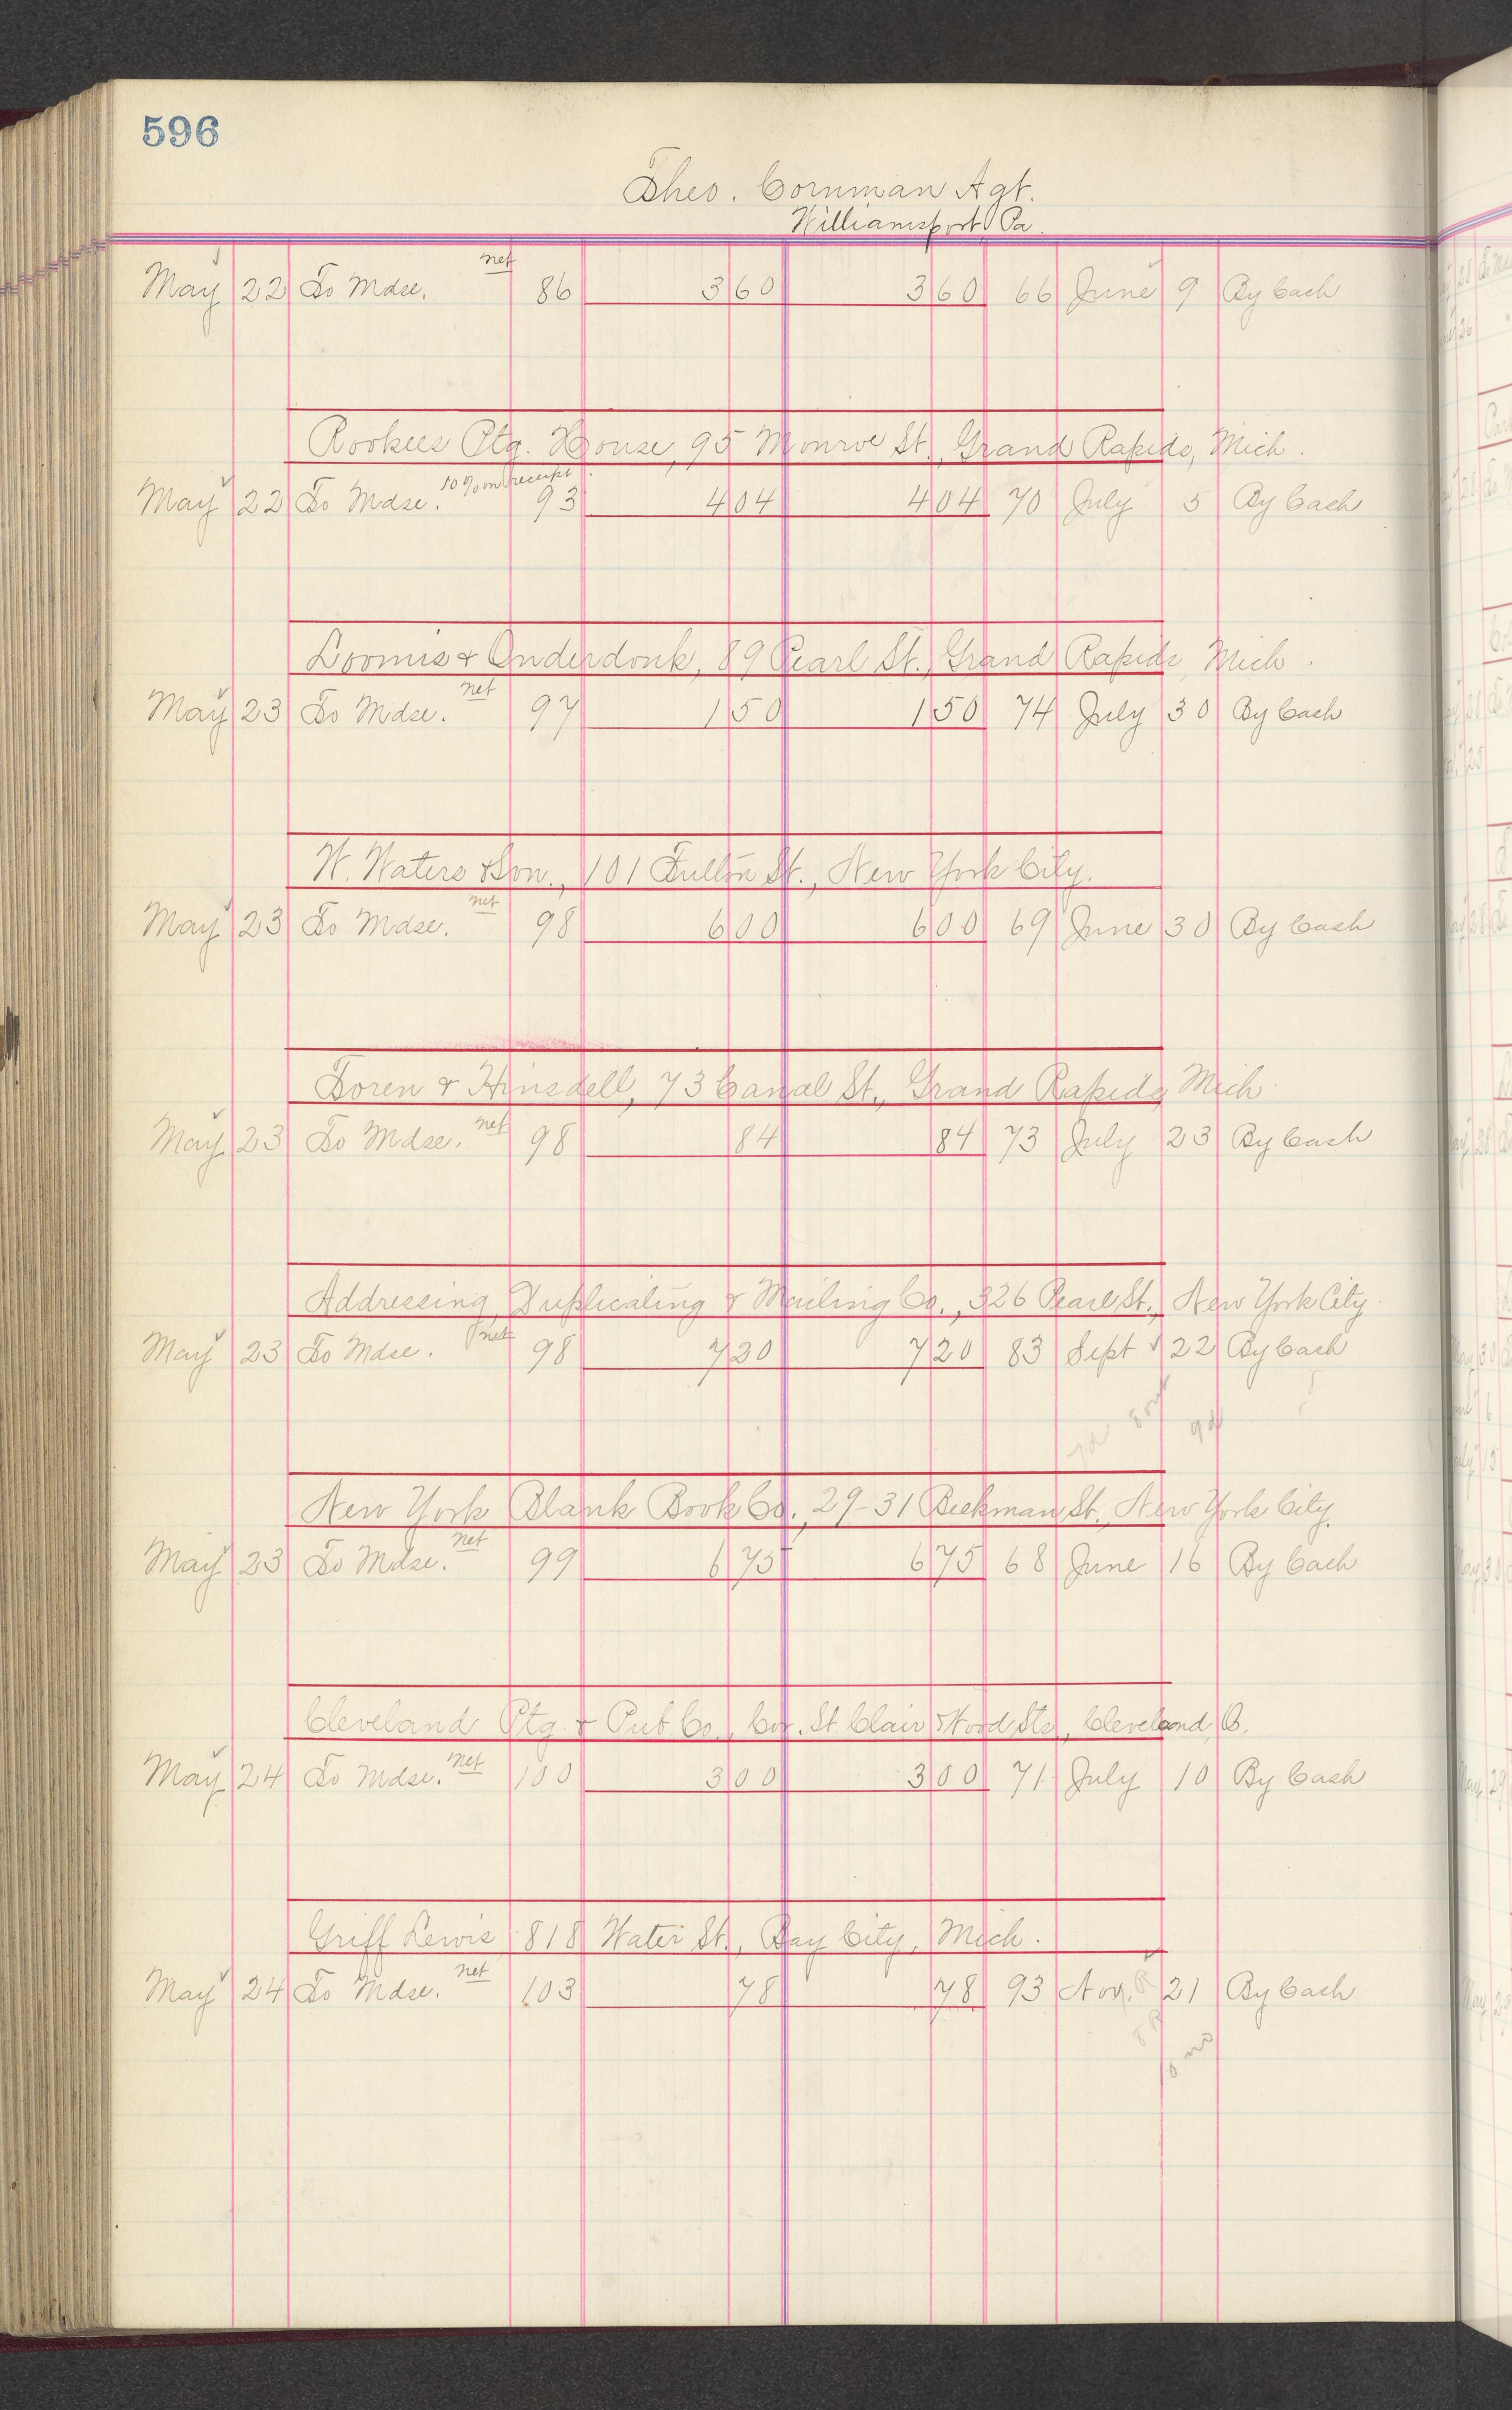 596
Theo. Cornman Agt.
Williamsport Pa.
net
May 22 To Mdse. 86 3 60 3 60 66 June 9 By Cash
Rookees Ptg. House, 95 Monroe St., Grand Rapids, Mich.
10% on receipt
May 22 To Mdse. 93 4 04 4 04 70 July 5 By Cash
Loomis & Onderdonk, 89 Pearl St., Grand Rapids, Mich.
net
May 23 To Mdse. 97 1 50 1 50 74 July 30 By Cash
W. Waters & Son., 101 Fulton St., New York City.
net
May 23 To Mdse. 98 6 00 6 00 69 June 30 By Cash
Toren & Hinsdell, 73 Canal St., Grand Rapids, Mich
net
May 23 To Mdse. 98 84 84 73 July 23 By Cash
Addressing, Duplicating & Mailing Co., 326 Pearl St., New York City.
net
May 23 To Mdse. 98 7 20 7 20 83 Sept 22 By Cash
New York Blank Book Co., 29-31 Beekman St., New York City.
net
May 23 To Mdse. 99 6 75 6 75 68 June 16 By Cash
Cleveland Ptg. & Pub Co., Cor. St. Clair & Wood Sts., Cleveland, O.
net
May 24 To Mdse. 100 3 00 3 00 71 July 10 By Cash
Griff Lewis, 818 Water St., Bay City, Mich.
net
May 24 To Mdse. 103 78 78 93 Nov. 21 By Cash